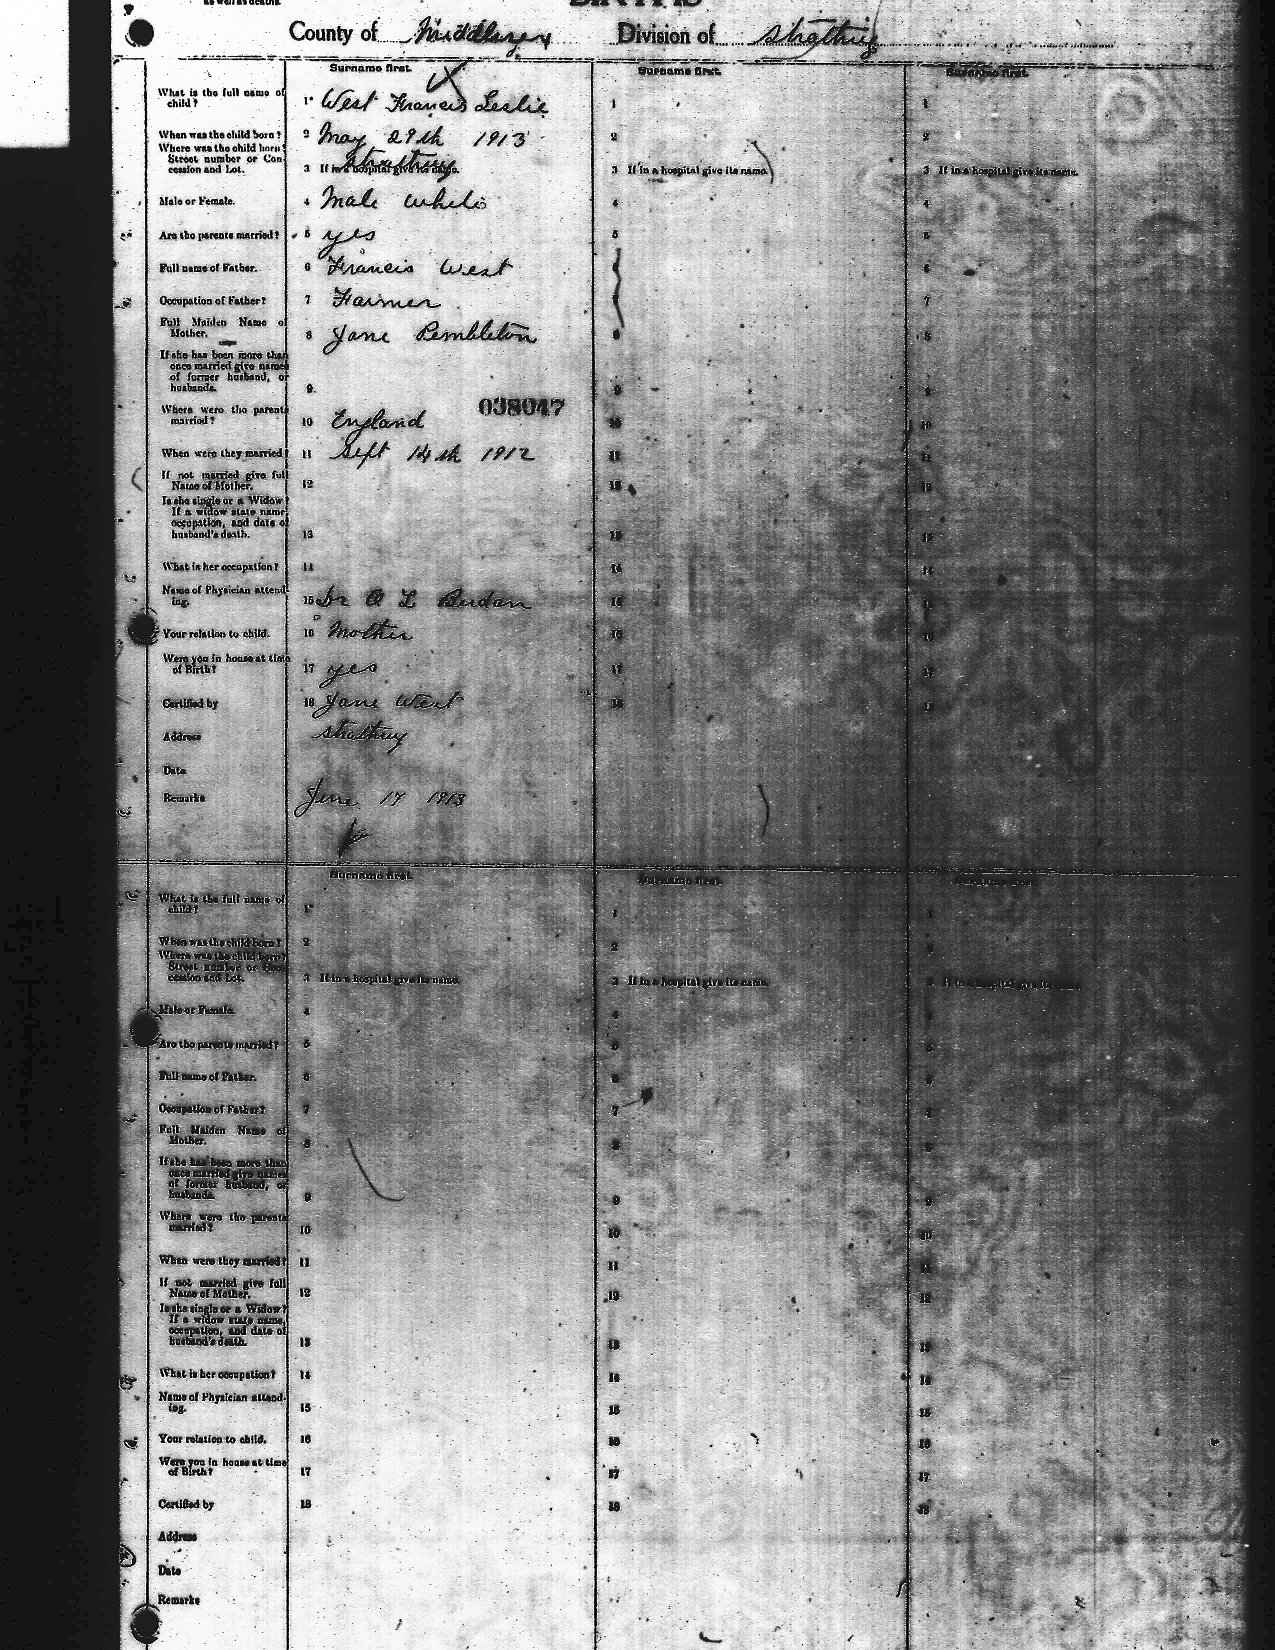 as well as deaths.
BIRTHS
County of Middlesex Division of Strathroy
Surname first. Surname first. Surname first.
What is the full name of child? 1 West Francis Leslie 1 1
When was the child born? 2 May 29th 1913 2 2
Where was the child born? Strathroy
Street number or Con-
cession and Lot. 3 If in a hospital give its name. 3 If in a hospital give its name. 3 If in a hospital give its name.
Male or Female. 4 Male White 4 4
Are the parents married? 5 yes 5 5
Full name of Father. 6 Francis West 6
Occupation of Father? 7 Farmer 7
Full Maiden Name of
Mother. 8 Jane Pembleton 8 8
If she has been more than
once married give names
of former husband, or
husbands. 9. 9 9
038047
Where were the parents
married? 10 England 10 10
When were they married? 11 Sept 14th 1912 11 11
If not married give full
Name of Mother. 12 12 12
Is she single or a Widow?
If a widow state name,
occupation, and date of
husband's death. 13 13 13
What is her occupation? 14 14 14
Name of Physician attend-
ing. 15 Dr O L Berdan 15 15
Your relation to child. 16 Mother 16 16
Were you in house at time
of Birth? 17 yes 17 17
Certified by 18 Jane West 18 18
Address Strathroy
Date
Remarks June 17 1913
Surname first. Surname first. Surname first.
What is the full name of
child? 1 1 1
When was the child born? 2 2 2
Where was the child born?
Street number or Con-
cession and Lot. 3 If in a hospital give its name. 3 If in a hospital give its name. 3 If in a hospital give its name.
Male or Female. 4 4
Are the parents married? 5 5 5
Full name of Father. 6 6 6
Occupation of Father? 7 7 7
Full Maiden Name of
Mother. 8 8 8
If she has been more than
once married give names
of former husband, or
husbands. 9 9 9
Where were the parents
married? 10 10 10
When were they married? 11 11 11
If not married give full
Name of Mother. 12 12 12
Is she single or a Widow?
If a widow state name,
occupation, and date of
husband's death. 13 13 13
What is her occupation? 14 14 14
Name of Physician attend-
ing. 15 15 15
Your relation to child. 16 16 16
Were you in house at time
of Birth? 17 17 17
Certified by 18 18 18
Address
Date
Remarks